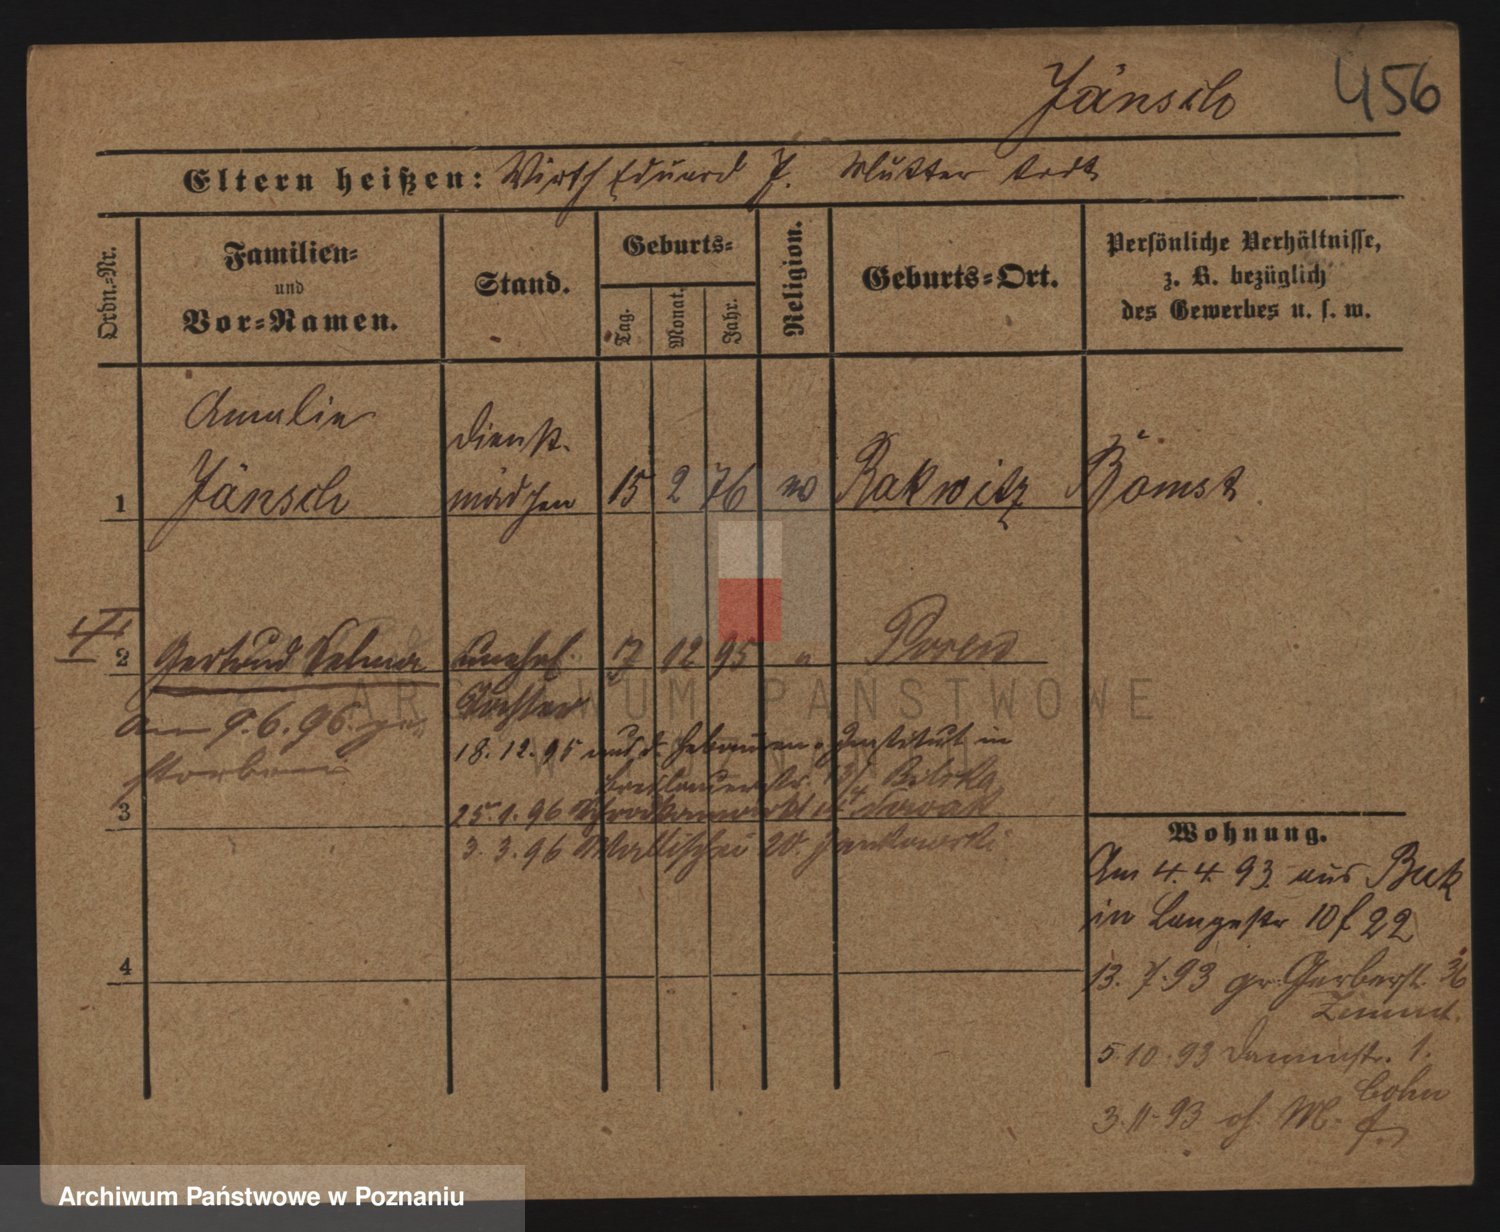 Jänsch 456
Eltern heißen: Wirth Eduard J. Mutter todt
Ordn.-Nr.
Familien-
und
Vor-Namen.
Stand.
Geburts-
Tag.
Monat.
Jahr.
Religion.
Geburts-Ort.
Persönliche Verhältnisse,
z. B. bezüglich
des Gewerbes u. s. w.
Amalie
Dienst-
1 Jänsch mädchen 15 2 76 Rakwitz Bomst
2 Gertrud Selma unehel. 7 12 95 " Posen
Tochter
am 9.6.96 ge-
storben
18.12.95 aus d. Hebammen-Institut in
3
25.1.96 Nowak
3.3.96 Wallischei 20. Jankowski
Wohnung.
Am 4.4.93 aus Buk
in Langestr 10 f 22
4
13.7.93 gr. Gerberst. 36
5.10.93 Dammstr. 1.
Cohn
3.11.93
ARCHIWUM PAŃSTWOWE
W POZNANIU
Archiwum Państwowe w Poznaniu